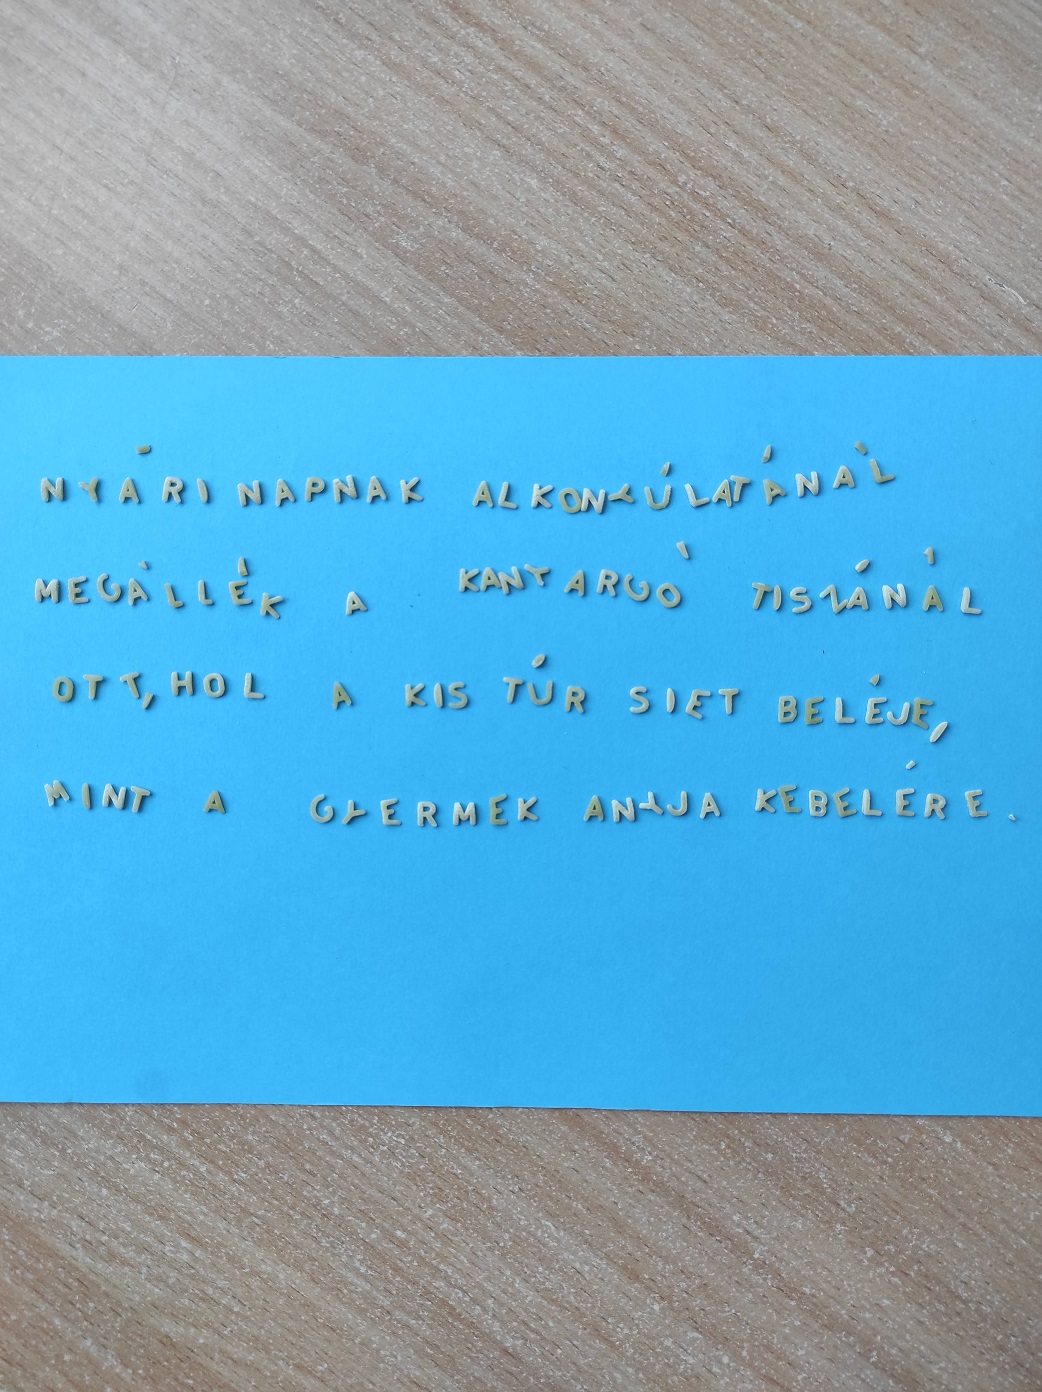 NYÁRI NAPNAK ALKONYÚLATÁNÁL
MEGÁLLÉK A KANYARGÓ TISZÁNÁL
OTT, HOL A KIS TÚR SIET BELÉJE,
MINT A GYERMEK ANYJA KEBELÉRE.